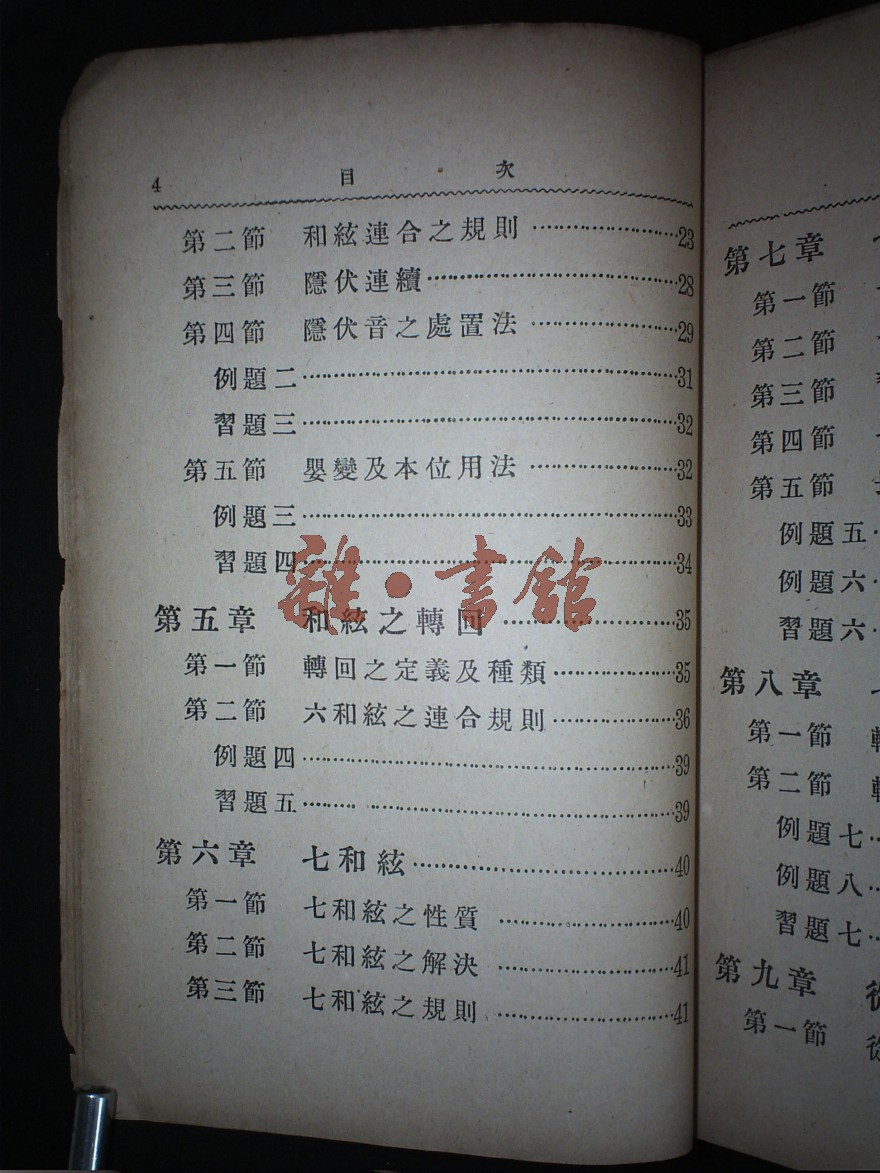 4 目 次
第二節 和絃連合之規則 …………………23
第三節 隱伏連續………………………………28
第四節 隱伏音之處置法 …………………29
例題二………………………………………………31
習題三………………………………………………32
第五節 嬰變及本位用法 …………………32
例題三………………………………………………33
習題四………………………………………………34
第五章 和絃之轉回 ………………………35
第一節 轉回之定義及種類………………35
第二節 六和絃之連合規則………………36
例題四………………………………………………39
習題五………………………………………………39
第六章 七和絃…………………………………40
第一節 七和絃之性質 ……………………40
第二節 七和絃之解決 ……………………41
第三節 七和絃之規則 ……………………41
雜·書館
第七章
第一節
第二節
第三節
第四節
第五節
例題五
例題六
習題六
第八章
第一節
第二節
例題七
例題八
習題七
第九章
第一節